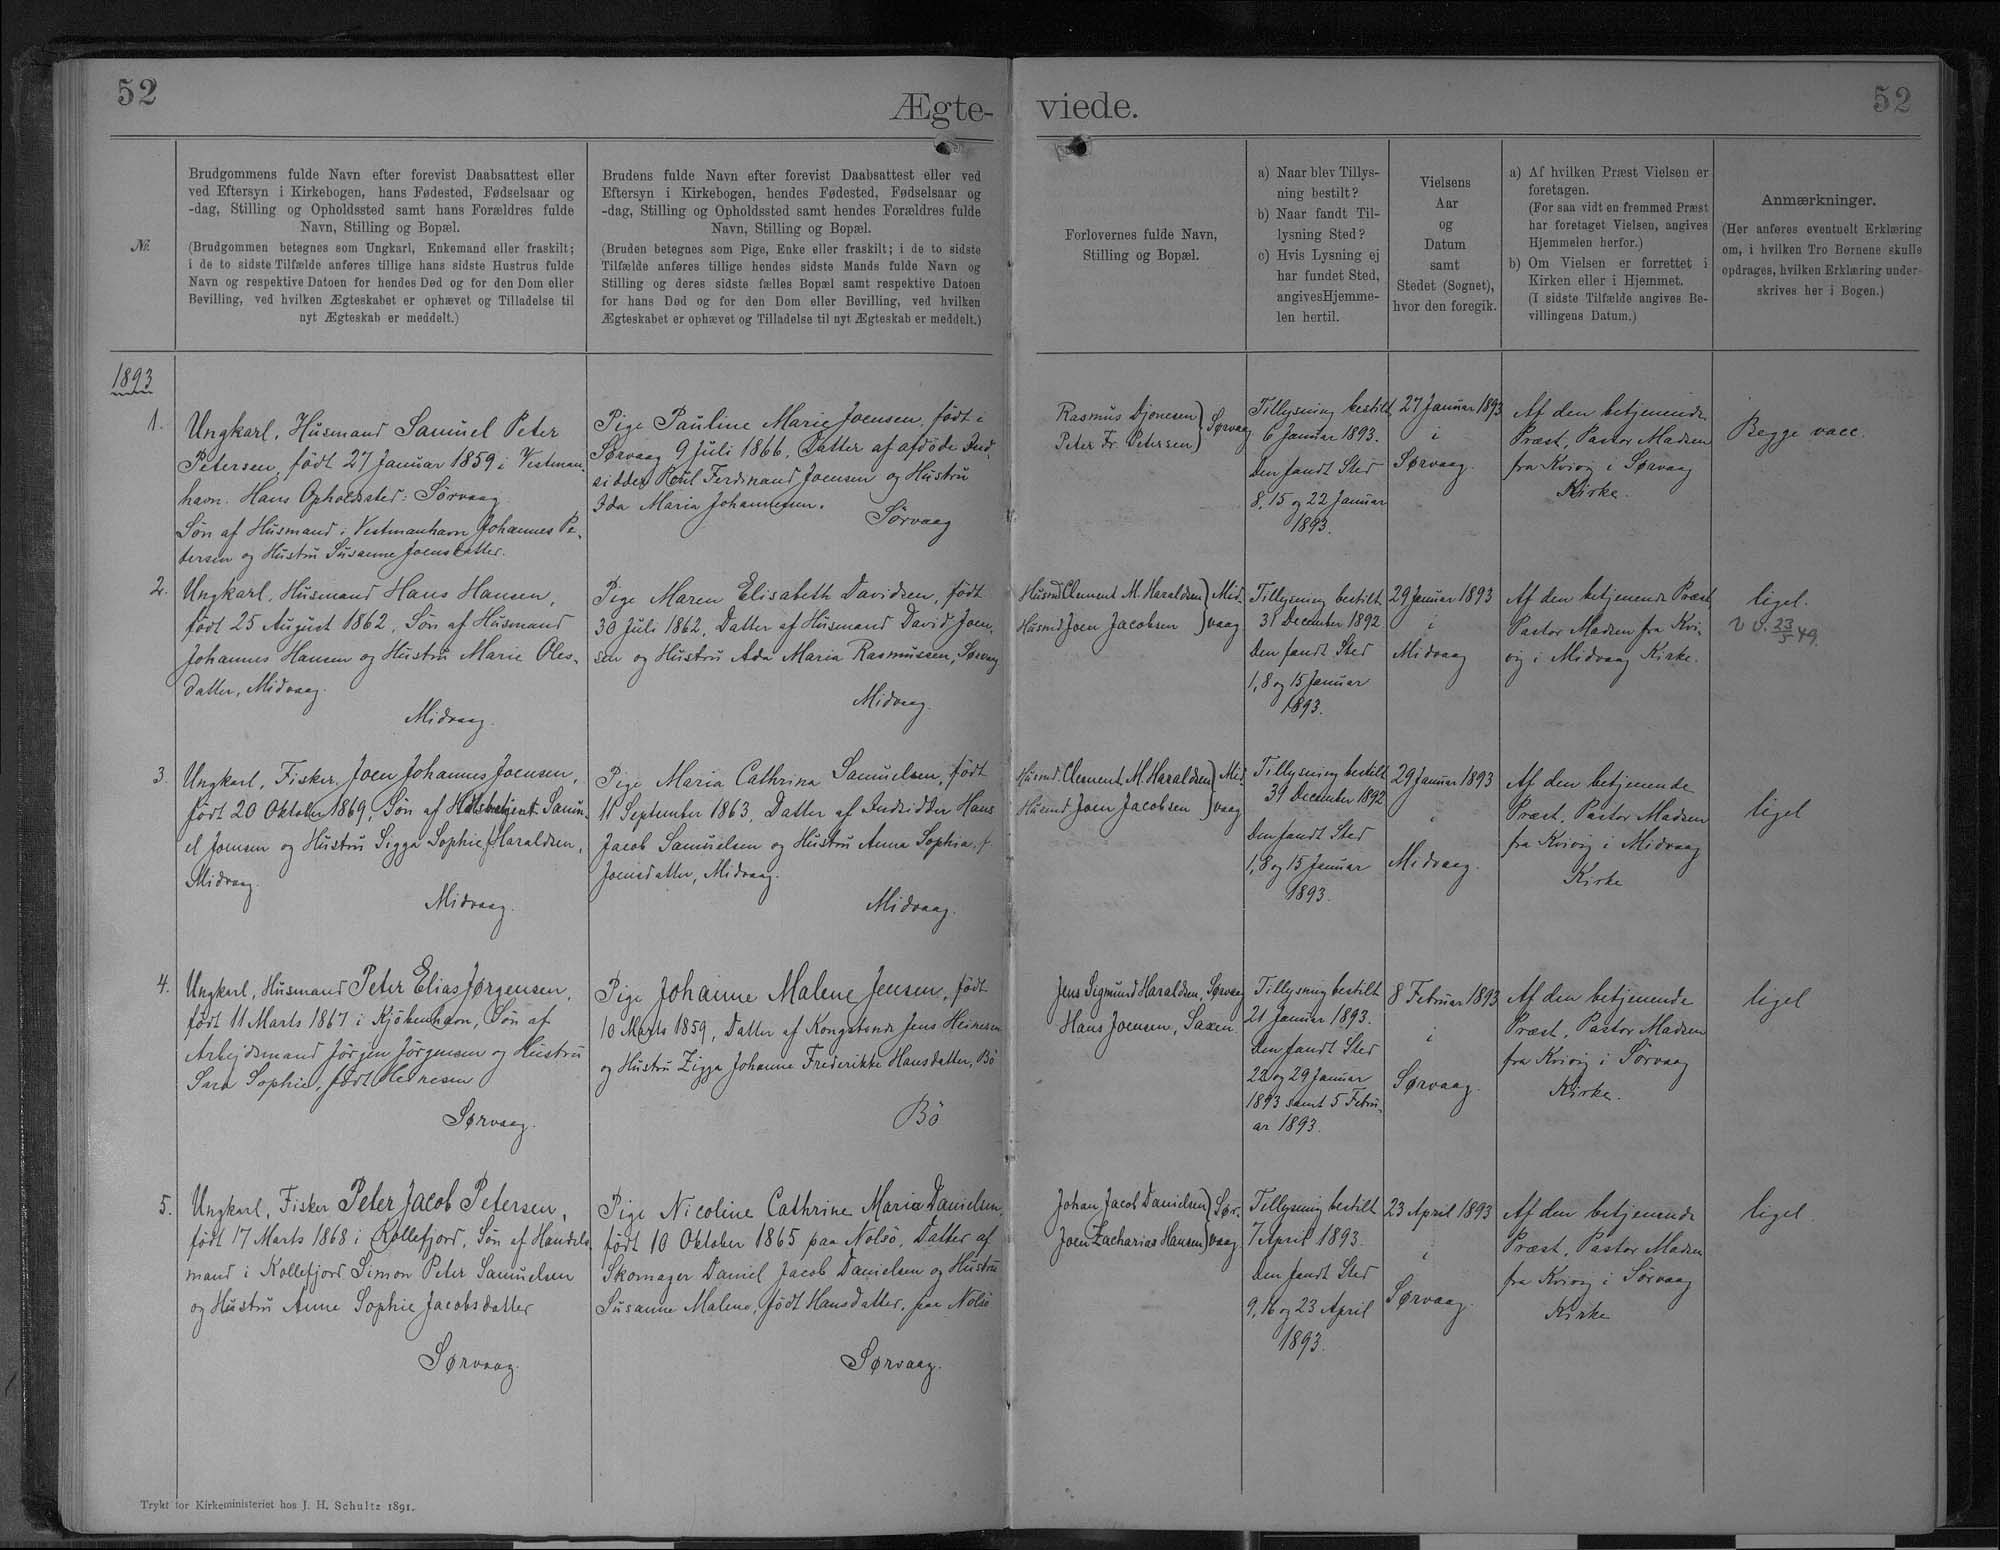 52
Ægte-
viede.
52
№
Brudgommens fulde Navn efter forevist Daabsattest eller
ved Eftersyn i Kirkebogen, hans Fødested, Fødselsaar og
-dag, Stilling og Opholdssted samt hans Forældres fulde
Navn, Stilling og Bopæl.
(Brudgommen betegnes som Ungkarl, Enkemand eller fraskilt;
i de to sidste Tilfælde anføres tillige hans sidste Hustrus fulde
Navn og respektive Datoen for hendes Død og for den Dom eller
Bevilling, ved hvilken Ægteskabet er ophævet og Tilladelse til
nyt Ægteskab er meddelt.)
Brudens fulde Navn efter forevist Daabsattest eller ved
Eftersyn i Kirkebogen, hendes Fødested, Fødselsaar og
-dag, Stilling og Opholdssted samt hendes Forældres fulde
Navn, Stilling og Bopæl.
(Bruden betegnes som Pige, Enke eller fraskilt; i de to sidste
Tilfælde anføres tillige hendes sidste Mands fulde Navn og
Stilling og deres sidste fælles Bopæl samt respektive Datoen
for hans Død og for den Dom eller Bevilling, ved hvilken
Ægteskabet er ophævet og Tilladelse til nyt Ægteskab er meddelt.)
Forlovernes fulde Navn,
Stilling og Bopæl.
a) Naar blev Tillys-
ning bestilt?
b) Naar fandt Til-
lysning Sted?
c) Hvis Lysning ej
har fundet Sted,
angives Hjemme-
len hertil.
Vielsens
Aar
og
Datum
samt
Stedet (Sognet),
hvor den foregik.
a) Af hvilken Præst Vielsen er
foretagen.
(For saa vidt en fremmed Præst
har foretaget Vielsen, angives
Hjemmelen herfor.)
b) Om Vielsen er forrettet i
Kirken eller i Hjemmet.
(I sidste Tilfælde angives Be-
villingens Datum.)
Anmærkninger.
(Her anføres eventuelt Erklæring
om, i hvilken Tro Børnene skulle
opdrages, hvilken Erklæring under-
skrives her i Bogen.)
1893
1.
Ungkarl, Husmand Samuel Peter
Petersen, født 27 Januar 1859 i Vestman-
havn. Hans Opholdssted: Sörvaag
Sön af Husmand i Vestmanhavn Johannes Pe-
tersen og Hustru Susanne Joensdatter.
Pige Pauline Marie Joensen, født i
Sørvaag 9 Juli 1866, Datter af afdöde Ind-
sidder Poul Ferdinand Joensen og Hustru
Ida Maria Johannesen.
Sörvaag
Rasmus Djonesen
Peter Fr. Petersen } Sørvaag
Tillysning bestilt
6 Januar 1893.
Den fandt Sted
8, 15 og 22 Januar
1893.
27 Januar 1893
i
Sørvaag.
Af den betjenende
Præst, Pastor Madsen
fra Kvivig i Sørvaag
Kirke.
Begge vacc.
2.
Ungkarl, Husmand Hans Hansen,
født 25 August 1862, Sön af Husmand
Johannes Hansen og Hustru Marie Oles-
datter, Midvaag.
Midvaag.
Pige Maren Elisabeth Davidsen, født
30 Juli 1862, Datter af Husmand David Joen-
sen og Hustru Ada Maria Rasmussen, Sørvaag
Midvaag.
Husmd Clement M. Haraldsen } Mid-
Husmd Joen Jacobsen } vaag
Tillysning bestilt
31 December 1892
Den fandt Sted
1, 8 og 15 Januar
1893.
29 Januar 1893
i
Midvaag
Af den betjenende Præst
Pastor Madsen fra Kvi-
vig i Midvaag Kirke.
ligel.
V. V. 23/5 49.
3.
Ungkarl, Fisker, Joen Johannes Joensen,
født 20 Oktober 1869, Sön af Samu-
el Joensen og Hustru Sigga Sophie f. Haraldsen,
Midvaag.
Midvaag.
Pige Maria Cathrina Samuelsen, født
11 September 1863, Datter af Indsidder Hans
Jacob Samuelsen og Hustru Anna Sophia, f.
Joensdatter, Midvaag.
Midvaag.
Husmd. Clement M. Haraldsen } Mid-
Husmd Joen Jacobsen } vaag
Tillysning bestilt
31 December 1892
Den fandt Sted
1, 8 og 15 Januar
1893.
29 Januar 1893
i
Midvaag.
Af den betjenende
Præst, Pastor Madsen
fra Kvivig i Midvaag
Kirke
ligel
4.
Ungkarl, Husmand Peter Elias Jørgensen,
født 11 Marts 1867 i Kjöbenhavn, Sön af
Arbejdsmand Jörgen Jörgensen og Hustru
Sara Sophie, født Heinesen
Sørvaag.
Pige Johanne Malene Jensen, født
10 Marts 1859, Datter af Kongsbonde Jens Heinesen
og Hustru Zigga Johanne Frederikke Hansdatter, Bö
Bö
Jens Sigmund Haraldsen, Sørvaag
Hans Joensen, Saxen
Tillysning bestilt
21 Januar 1893.
Den fandt Sted
22 og 29 Januar
1893 samt 5 Febru-
ar 1893.
8 Februar 1893
i
Sørvaag.
Af den betjenende
Præst, Pastor Madsen
fra Kvivig i Sörvaag
Kirke.
ligel
5.
Ungkarl, Fisker Peter Jacob Petersen,
født 17 Marts 1868 i Kollefjord, Sön af Handels-
mand i Kollefjord Simon Peter Samuelsen
og Hustru Anne Sophie Jacobsdatter
Sørvaag.
Pige Nicoline Cathrine Maria Danielsen,
født 10 Oktober 1865 paa Nolsö, Datter af
Skomager Daniel Jacob Danielsen og Hustru
Susanne Malene, født Hansdatter, paa Nolsö
Sørvaag.
Johan Jacob Danielsen } Sør-
Joen Zacharias Hansen } vaag
Tillysning bestilt
7 April 1893.
Den fandt Sted
9, 16 og 23 April
1893.
23 April 1893
i
Sørvaag.
Af den betjenende
Præst, Pastor Madsen
fra Kvivig i Sörvaag
Kirke
ligel.
Trykt for Kirkeministeriet hos J. H. Schultz 1891.